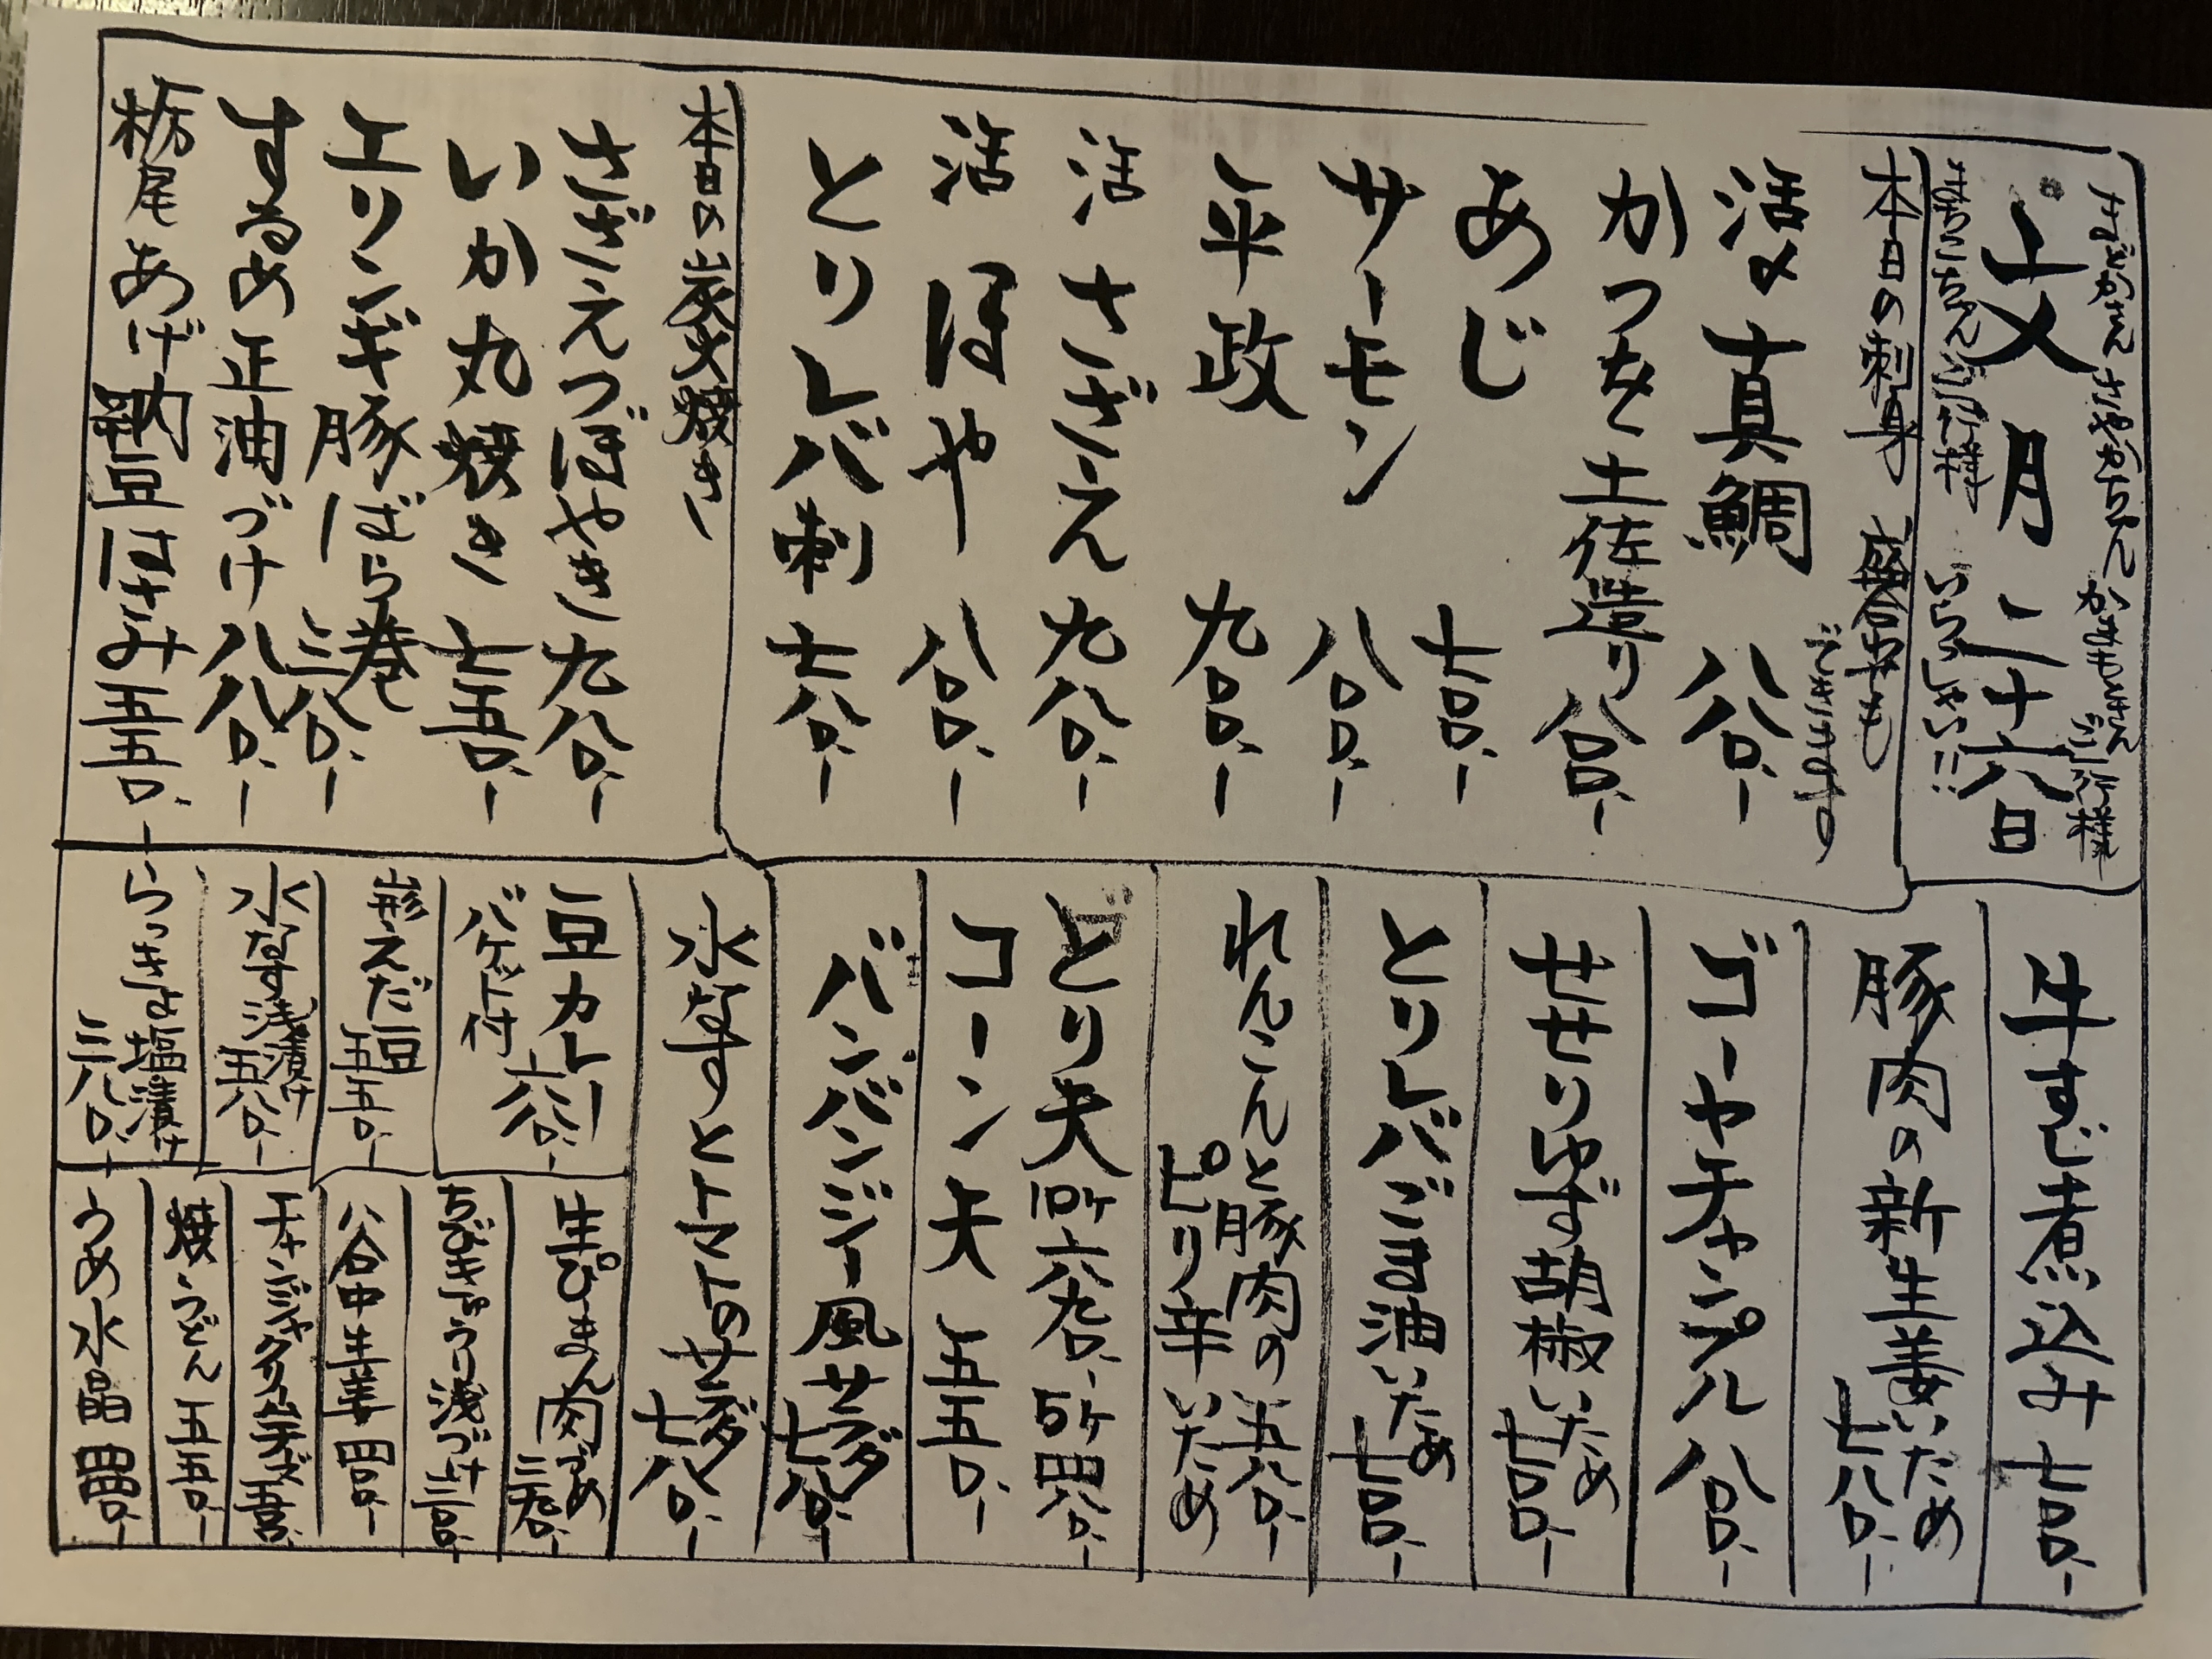 まどかさん さやかちゃん かまもとさん ご一行様
六月二十六日
まちこちゃんご一行様 いらっしゃい!!
本日の刺身 盛合せも
できます
活〆真鯛 八八〇.ー
かつを土佐造り 八八〇.ー
あじ 七八〇.ー
サーモン 八八〇.ー
平政 九八〇.ー
活さざえ 九八〇.ー
活ほや 八八〇.ー
とりレバ刺 七八〇.ー
本日の炭火焼き
さざえつぼやき 九八〇.ー
いか丸焼き 七五〇.ー
エリンギ豚ばら巻
三八〇.ー
するめ正油づけ 八八〇.ー
栃尾あげ納豆はさみ 五五〇.ー
牛すじ煮込み 七八〇.ー
豚肉の新生姜いため
七八〇.ー
ゴーヤチャンプル 八八〇.ー
せせりゆず胡椒いため
七八〇.ー
とりレバごま油いため
七八〇.ー
れんこんと豚肉の 五八〇.ー
ピリ辛いため
とり天 10ケ 六九〇.ー 5ケ 四八〇.ー
コーン天 五五〇.ー
バンバンジー風サラダ
七八〇.ー
水なすとトマトのサラダ
七八〇.ー
豆カレー
バゲット付 六八〇.ー
えだ豆
五五〇.ー
水なす浅漬け
五八〇.ー
らっきょ塩漬け
三八〇.ー
生ぴまん肉づめ
三九〇.ー
ちびきゅうり浅づけ 三八〇.ー
谷中生姜 四八〇.ー
チャンジャクリームチーズ 五五〇.ー
焼うどん 五五〇.ー
うめ水晶 四八〇.ー